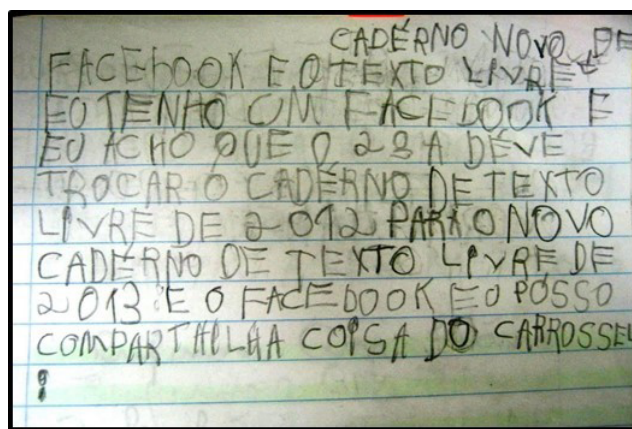 CADÉRNO NOVO DE
FACEBOOK E O TEXTO LIVRE
EU TENHO OM FACEBOOK E
EU ACHO QUE O 2ºA DEVE
TROCAR O CADÉRNO DE TEXTO
LIVRE DE 2012 PARA O NOVO
CADÉRNO DE TEXTO LIVRE DE
2013 E O FACEBOOK EO POSSO
COMPARTHILHA COISA DO CARROSSEL
!